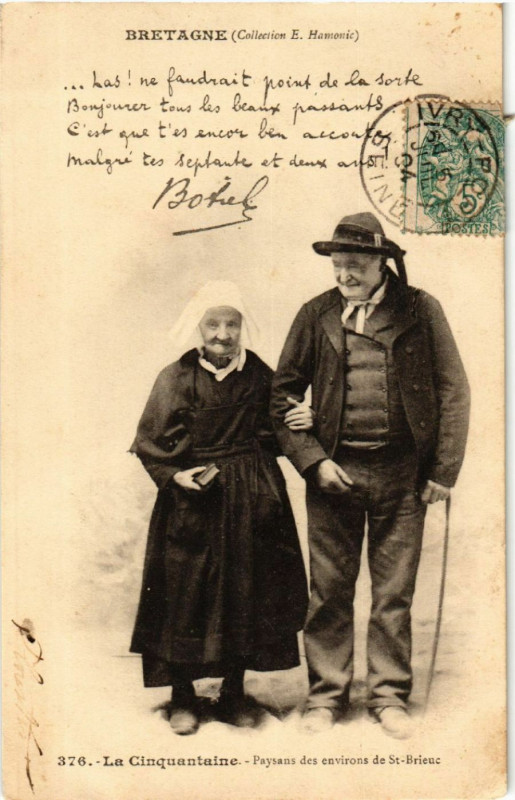 BRETAGNE (Collection E. Hamonic)
... Las! ne faudrait point de la sorte
Bonjourer tous les beaux passants
C'est que t'es encor ben accouty
Malgré tes septante et deux ans!
Botrel
IVRY-PORT
SEINE
04
5
POSTES
376. - La Cinquantaine. - Paysans des environs de St-Brieuc